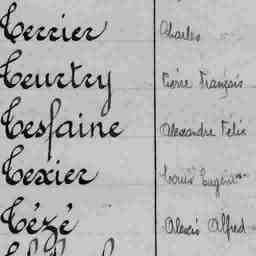 Terrier Charles
Teurtry Pierre François
Tesfaine Alexandre Felix
Texier Louis Eugène
Tézé Alexis Alfred